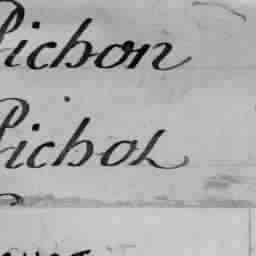 Pichon
Pichol